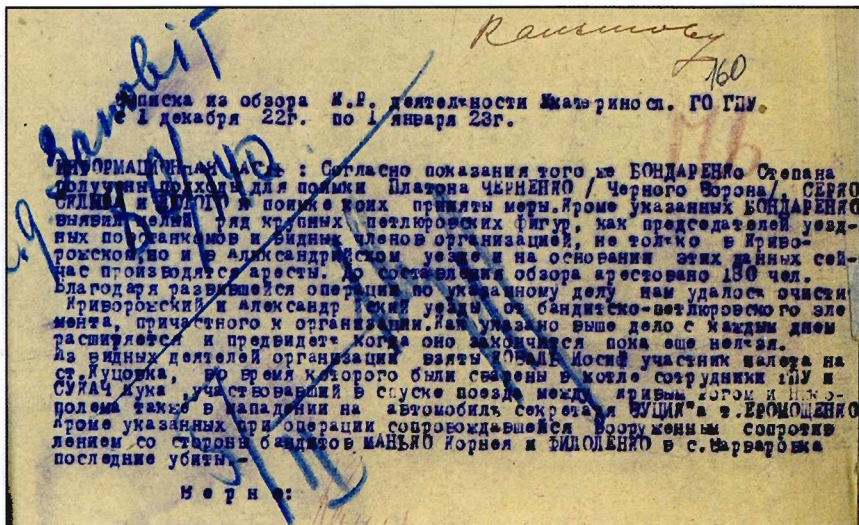 160
Выписка из обзора К.Р. деятельности Екатериносл. ГО ГПУ.
с 1 декабря 22г. по 1 января 23г.
ИНФОРМАЦИОННАЯ ЧАСТЬ : Согласно показания того же БОНДАРЕНКО Степана
получены подходы для поимки Платона ЧЕРНЕНКО / Черного Ворона/, СЕРКО
и к поимке коих приняты меры. Кроме указанных БОНДАРЕНКО
выявил целый ряд крупных петлюровских фигур, как председателей уезд-
ных повстанкомов и видных членов организацией, не только в Криво-
рожском, но и в Александрийском уезде и на основании этих данных сей-
час производятся аресты. До составления обзора арестовано 180 чел.
Благодаря развившейся операции по указанному делу нам удалось очисти
Криворожский и Александр ский уезды от бандитско-петлюровского эле
мента, причастного к организации. Как указано выше дело с каждым днем
расширяется и предвидеть когда оно закончится пока еще нельзя.
Из видных деятелей организации взяты КОВАЛЬ Иосиф участник налета на
ст. Куцовка, во время которого были сварены в котле сотрудники ГПУ и
СУКАЧ Лука, участвовавший в спуске поезда между Кривым Рогом и Нико-
полем а также в нападении на автомобиль секретаря ВУЦИК"а т. ЕРМОЩЕНКО
Кроме указанных при операции сопровождавшейся вооруженным сопротив
лением со стороны бандитов МАНЬКО Корнея и ФИЛОЛЕНКО в с. Варваровка
последние убиты.-
Верно: